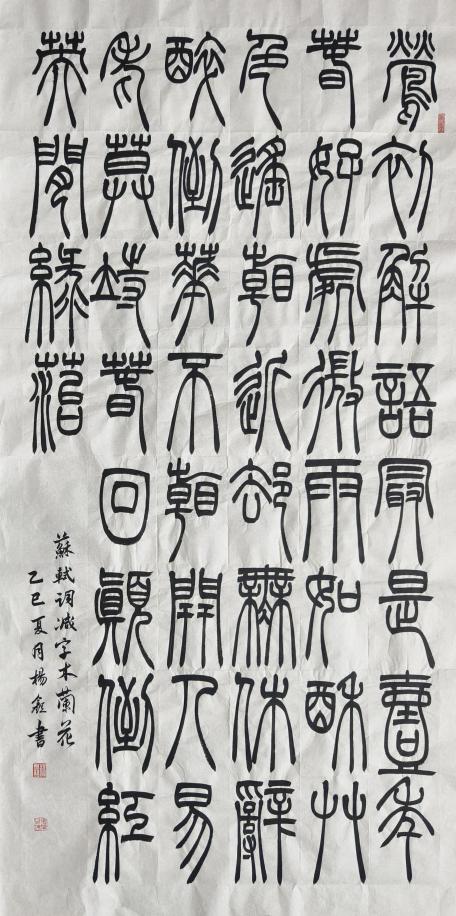 鶯初解語最是壹年
春好處微雨如酥艸
色遙看近卻無休辭
醉倒華不看開人易
老莫待春回顛倒紅
英間綠菭
蘇軾词减字木蘭花
乙巳夏月楊鑫書